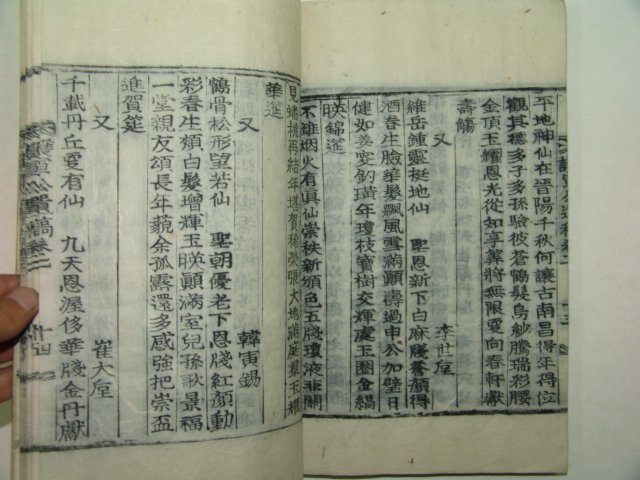 平地神仙在晉陽千秋何讓古南昌得年得位
觀其德多子多孫驗彼蒼鶴髮烏紗騰瑞彩腰
金頂玉耀恩光從知享葬將無憂向春軒獻
壽觴
又 李世垕
維岳鍾靈挺地仙 聖恩新下白麻牋蒼顔得
酒春生臉華髮飄風雪滿顚壽過申公加璧日
健如姜叟釣璜年瓊枝寶樹交輝處玉圈金縞
暎錦筵
不離烟火有眞仙崇秩新頒色五牋瓊液非關
見蟠桃再結年堪賀稀榮張大地滿庭羣玉耀
華筵
又 韓寅錫
鶴骨松形望若仙 聖朝優老下恩牋紅顔動
彩春生頰白髮增輝玉暎顚滿室兒孫歌景福
一堂親友頌長年藐余孤露還多感強把崇盃
進賀筵
又 崔大垕
千載丹丘爰有仙 九天恩渥侈華牋金丹獻
卷二 十四